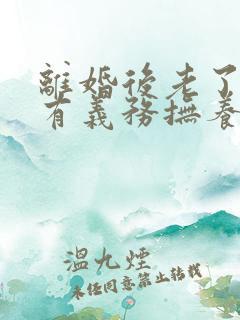 離婚後老了
有義務撫養
溫九煙
未經同意禁止轉載